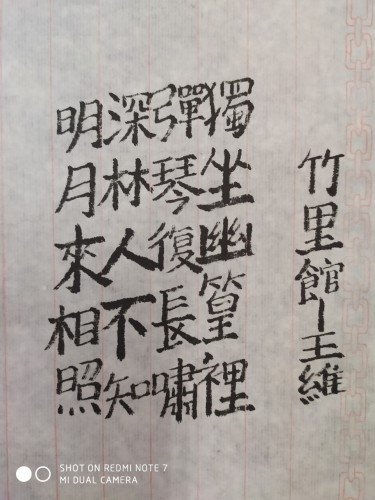 竹里館—王維
獨坐幽篁裡
彈琴復長嘯
深林人不知
明月來相照
SHOT ON REDMI NOTE 7
MI DUAL CAMERA